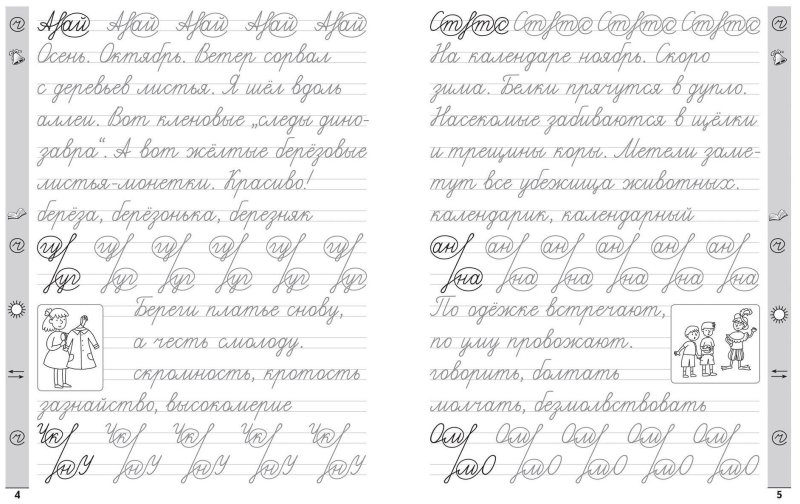 Ай Ай Ай Ай Ай
Осень. Октябрь. Ветер сорвал
с деревьев листья. Я шёл вдоль
аллеи. Вот кленовые „следы дино-
завра“. А вот жёлтые берёзовые
листья-монетки. Красиво!
берёза, берёзонька, березняк
гу гу гу гу гу гу
уг уг уг уг уг уг
Береги платье снову,
а честь смолоду.
скромность, кротость
зазнайство, высокомерие
Чк Чк Чк Чк Чк
нУ нУ нУ нУ нУ
4
Ст тс Ст тс Ст тс Ст тс
На календаре ноябрь. Скоро
зима. Белки прячутся в дупло.
Насекомые забиваются в щёлки
и трещины коры. Метели заме-
тут все убежища животных.
календарик, календарный
ан ан ан ан ан ан
на на на на на на
По одёжке встречают,
по уму провожают.
говорить, болтать
молчать, безмолвствовать
Ом Ом Ом Ом Ом
мО мО мО мО мО
5